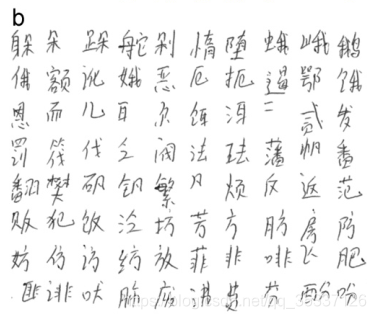 b
躲朵跺舵剁惰堕蛾峨鹅
俄额讹娥恶厄扼遏鄂饿
恩而儿耳尔饵洱二贰发
罚筏伐乏阀法珐藩帆番
翻樊矾钒繁凡烦反返范
贩犯饭泛坊芳方肪房防
妨仿访纺放菲非啡飞肥
匪诽吠肺废芬酚吩